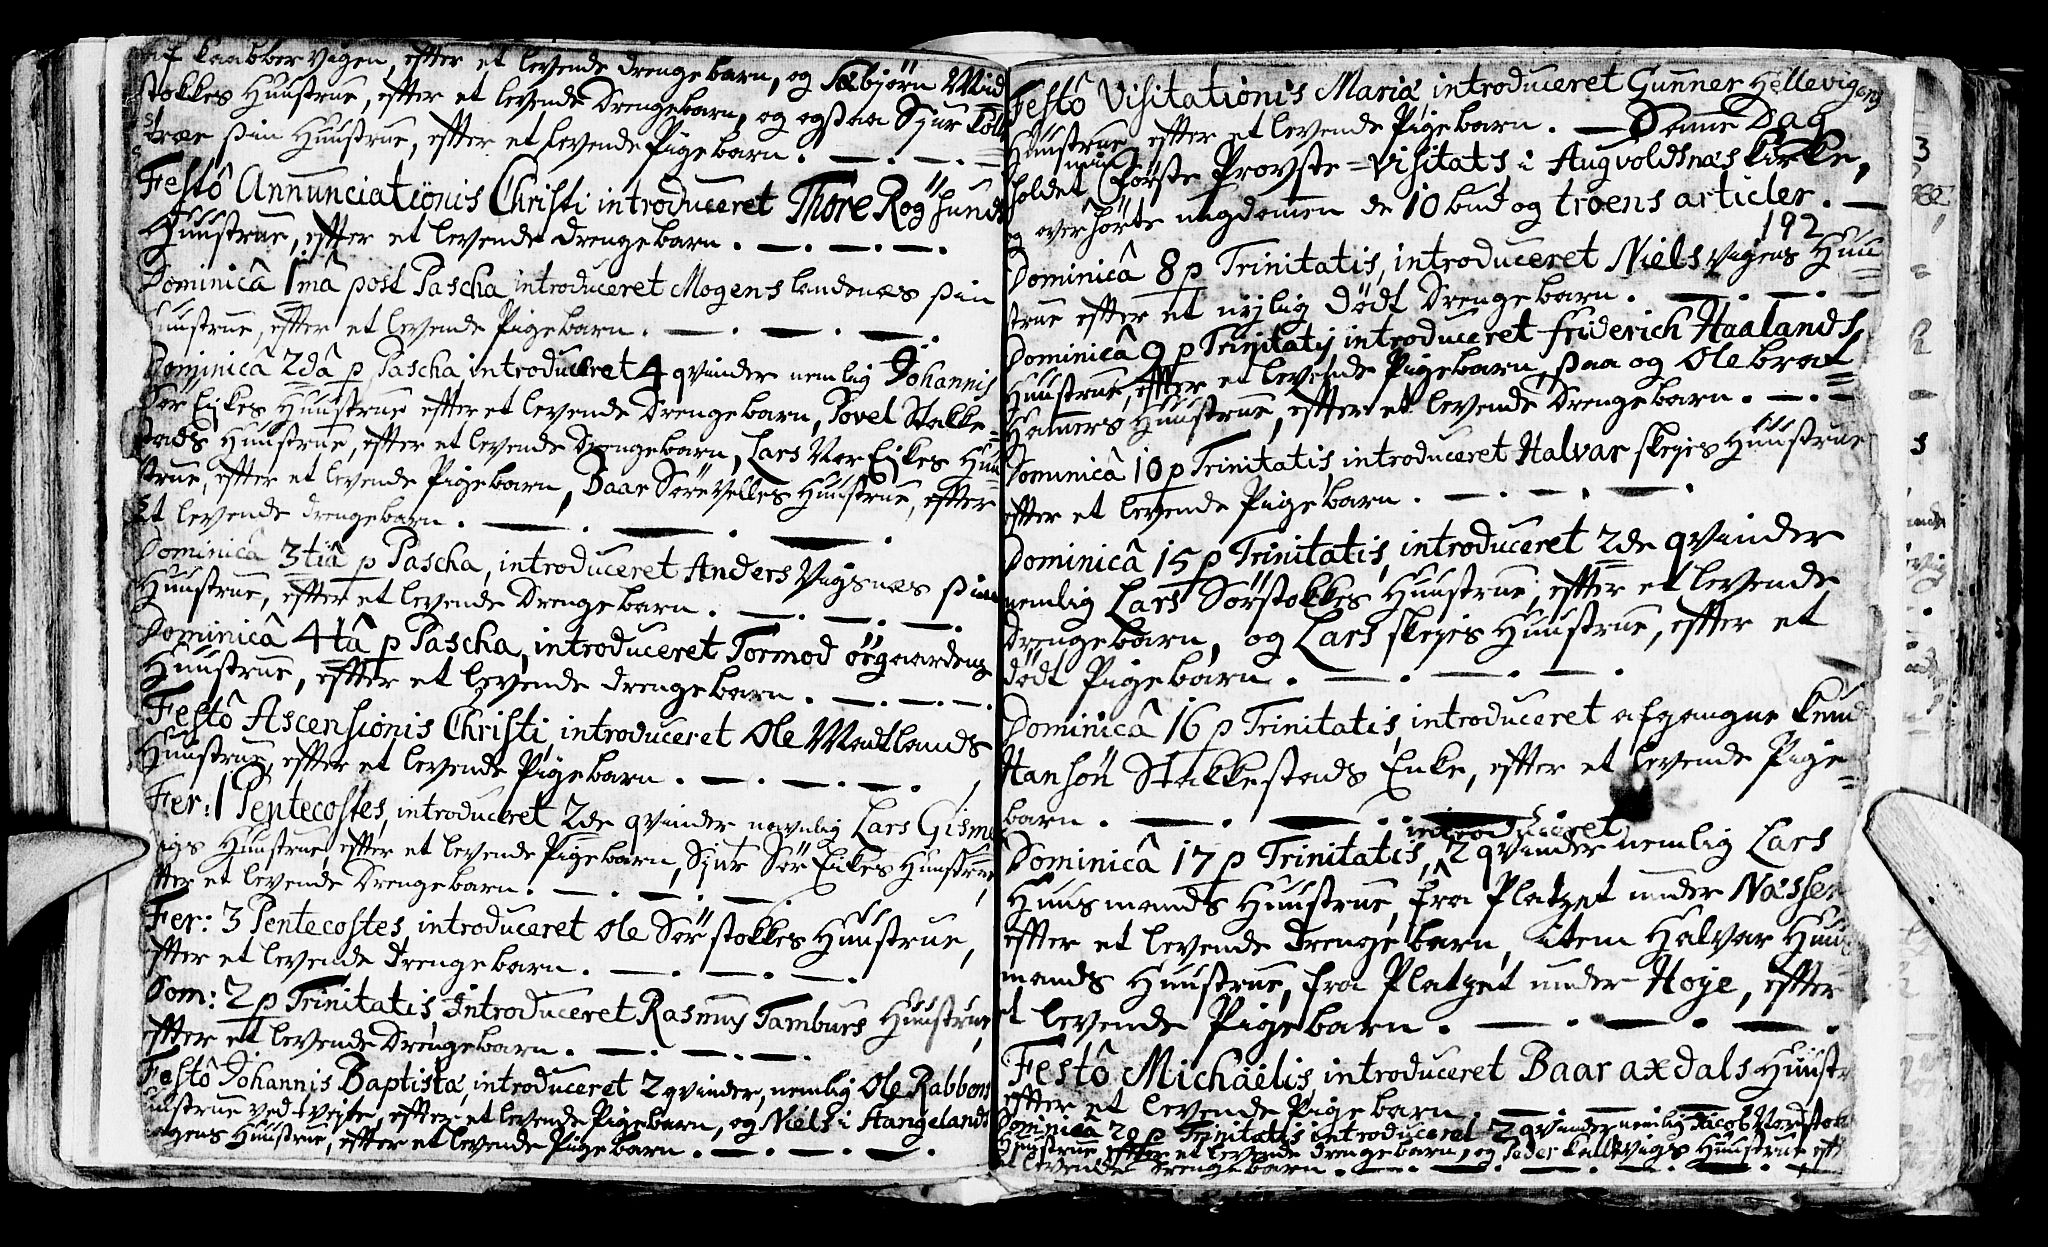 af Kaabbervigen, efter et levende drengebarn, og Sæbjørn Mid
stokkes Huustrue, efter et levende Drengebarn, og ogsaa Sjur
sin Huustrue, efter et levende Pigebarn.
Festô Annunciationis Christi introduceret Thore Røgsunds
Huustrue, efter et levende drengebarn.
Dominicâ 1mâ post Pascha introduceret Mogens Lendenæs sin
Huustrue, efter et levende Pigebarn.
Dominicâ 2dâ p Pascha, introduceret 4 qvinder nemlig Johannis
Sør Eikes Huustrue efter et levende Drengebarn, Povel Stakke-
stads Huustrue, efter et levende Drengebarn, Lars Nor Eikes Huu=
strue, efter et levende Pigebarn, Baar Sørevelles Huustrue, efter
et levende drengebarn.
Dominicâ 3tiâ p Pascha, introduceret Anders Vigsnæs sin
Huustrue, efter et levende Drengebarn.
Dominicâ 4tâ p Pascha, introduceret Tormod øegaardens
Huustrue, efter et levende drengebarn.
Festô Ascensionis Christi, introduceret Ole Madlands
Huustrue, efter et levende Pigebarn.
Fer: 1 Pentecostes, introduceret 2de qvinder nemlig Lars Gisme
vigs Huustrue, efter et levende Pigebarn, Sjur Sør Eikes Huustrue
efter et levende Drengebarn.
Fer: 3 Pentecostes, introduceret Ole Sørstokkes Huustrue,
efter et levende drengebarn.
Dom: 2 p Trinitatis Introduceret Rasmus Tamburs Huustrue,
efter et levende Drengebarn.
Festô Johannis Baptistæ, introduceret 2 qvinder, nemlig Ole Rabbens
Huustrue ved efter et levende Pigebarn, og Niels i Stangelands
Huustrue, efter et levende Pigebarn.
Festô Visitationis Mariæ introduceret Gunner Hellevigens
Huustrue, efter et levende Pigebarn. Samme Dag
min
holdet første Provste=Visitats i Augvoldsnæs Kirke,
og overhørte ungdomen de 10 bud og troens articler.
192
Dominicâ 8 p Trinitatis, introduceret Niels Vigens Huu=
strue efter et nylig dødt Drengebarn.
Dominicâ 9 p Trinitatis introduceret friderich Haalands
Huustrue, efter et levende Pigebarn, saa og Ole brat=
Hamers Huustrue, efter et levende Drengebarn.
Dominicâ 10 p Trinitatis, introduceret Halvar skeies Huustrue
efter et levende Pigebarn.
Dominicâ 15 p Trinitatis, introduceret 2de qvinder
nemlig Lars Sørstokkes Huustrue, efter et levende
Drengebarn, og Lars skeies Huustrue, efter et
dødt Pigebarn.
Dominicâ 16 p Trinitatis, introduceret afgangne Knud
Hansøn Stakkestads Enke, efter et levende Pige=
barn.
introduceret
Dominicâ 17 p Trinitatis, 2 qvinder nemlig Lars
Huusmands Huustrue, fra Platzet under Næsse
efter et levende drengebarn, item Halvar Huus
mands Huustrue, fra Platzet under Hoye, efter
et levende Pigebarn.
Festô Michäelis, introduceret Baar axdals Huustr
efter et levende Pigebarn.
Dominicâ 20 p Trinitatis introduceret 2 qvinder nemlig Jacob Nordstok
Huustrue efter et levende drengebarn, og Peder Kallevigs Huustrue eft
et levende drengebarn.